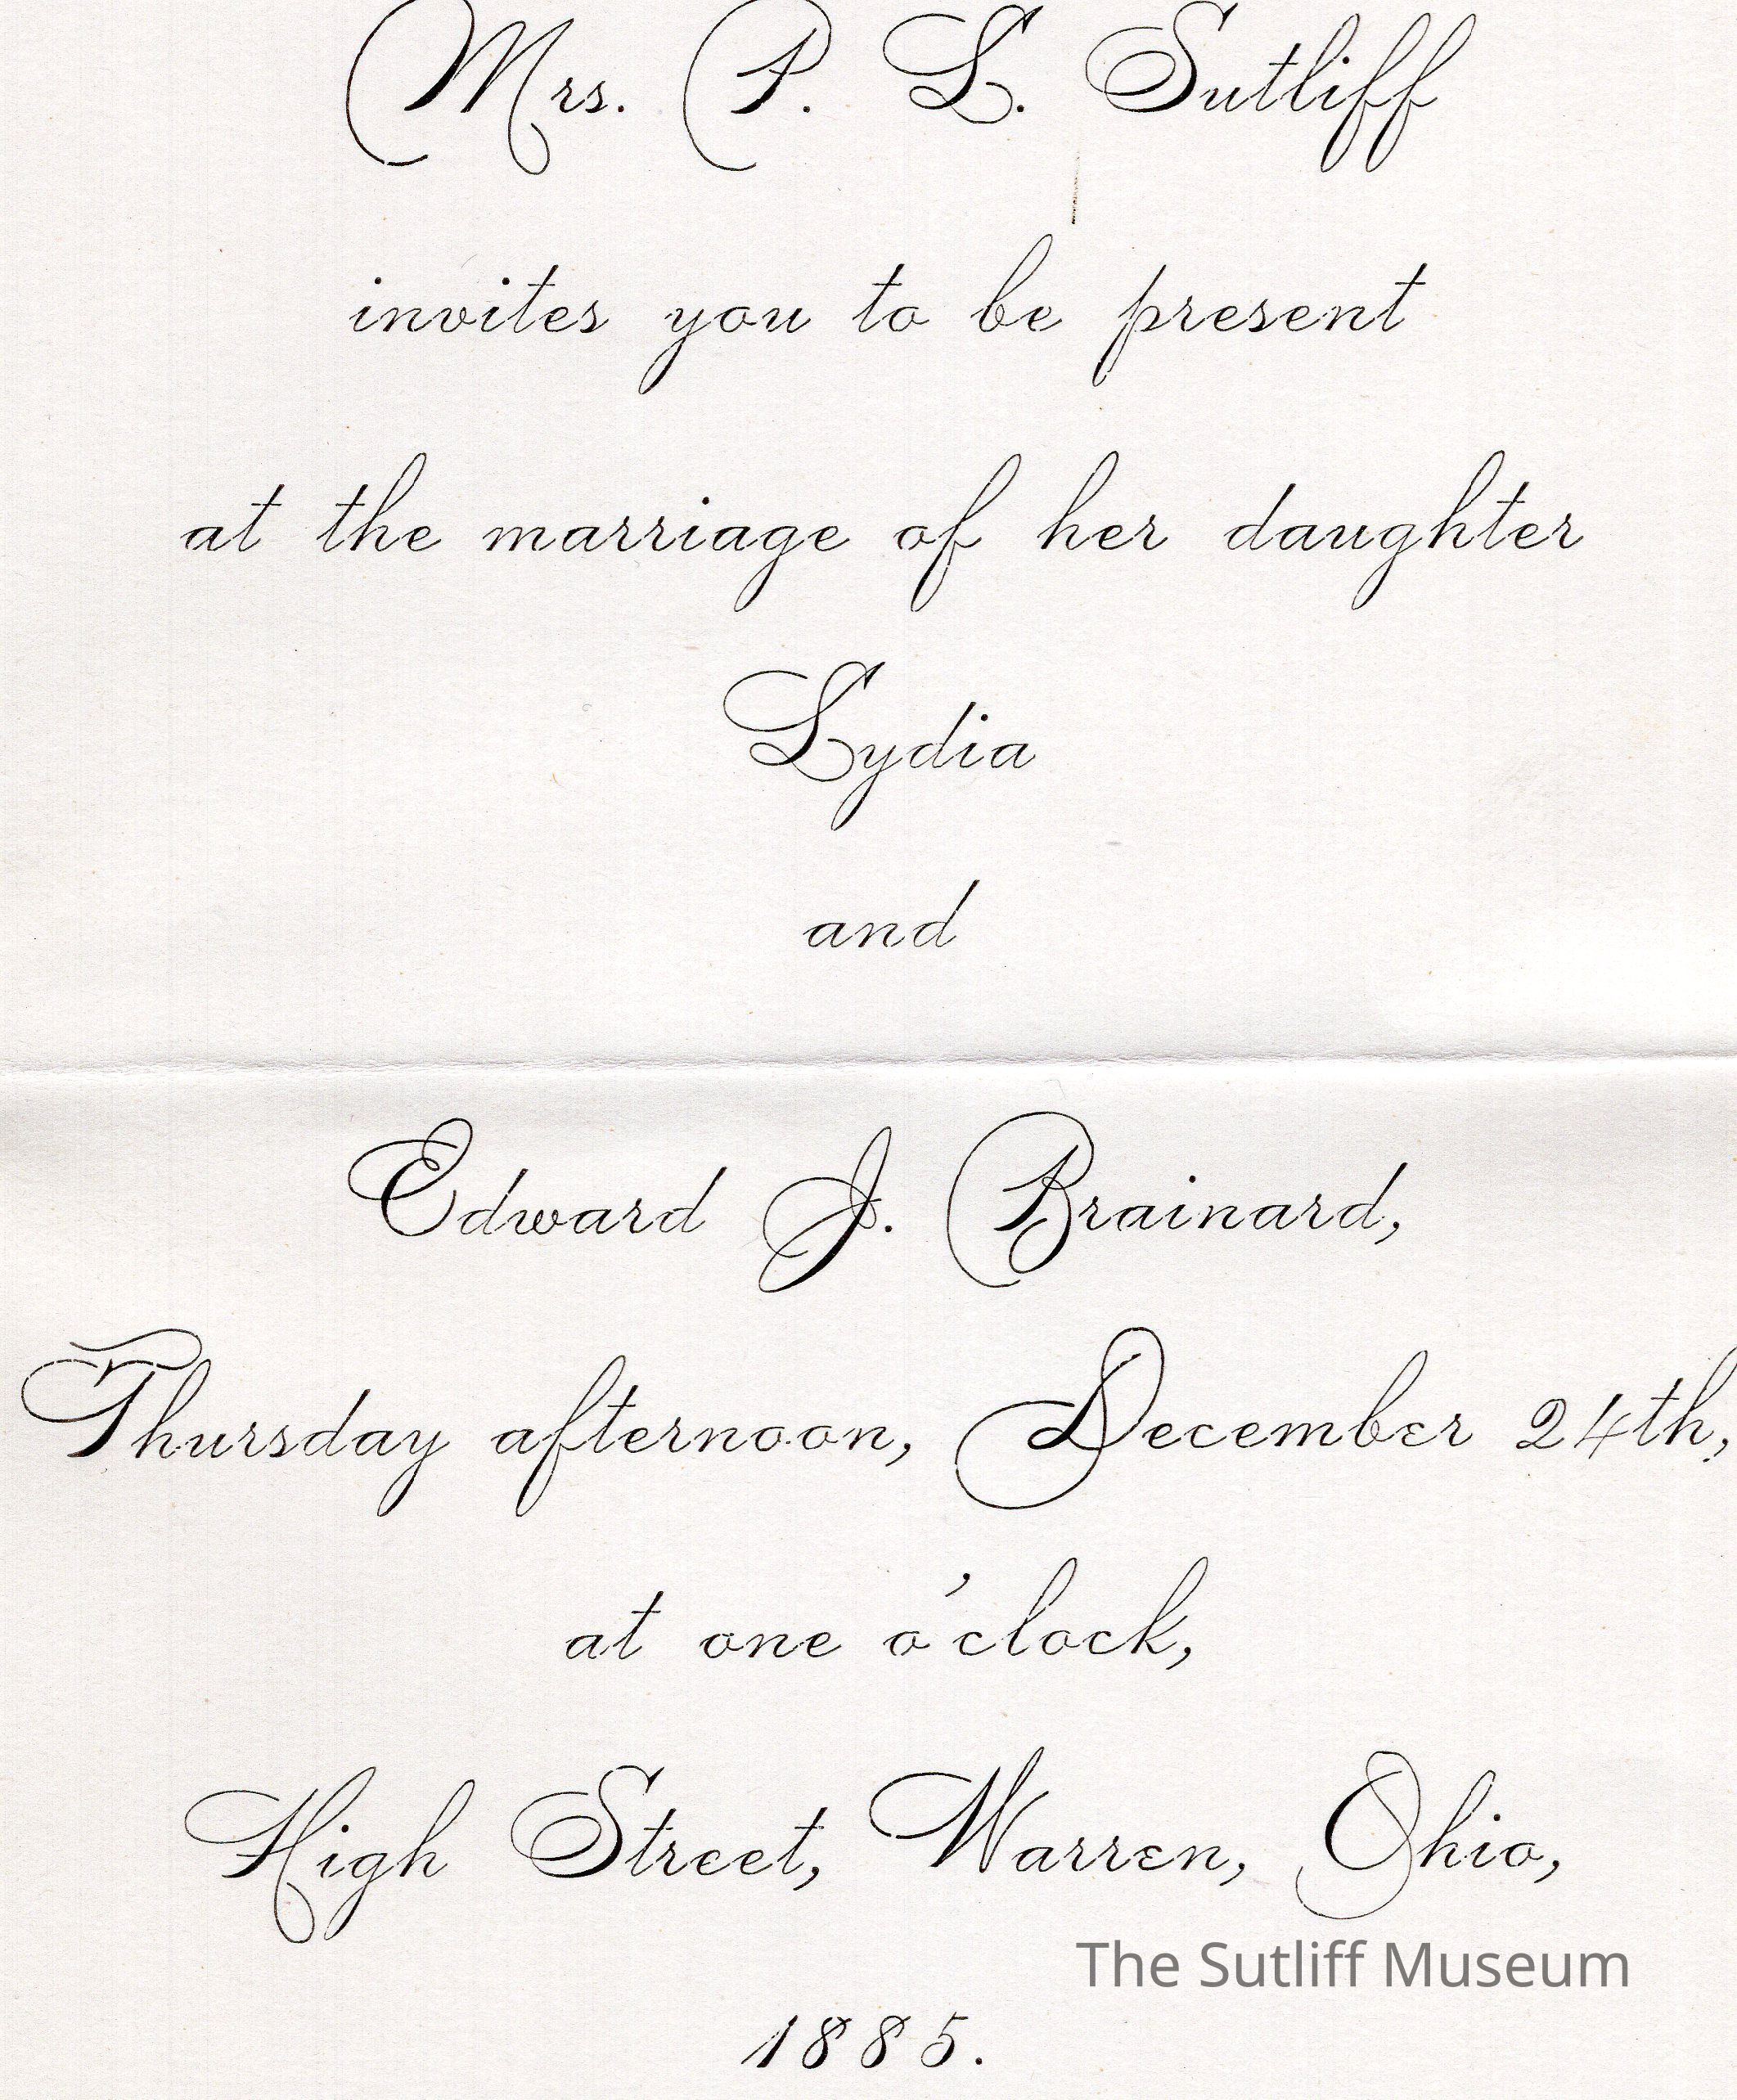 Mrs. P. L. Sutliff
invites you to be present
at the marriage of her daughter
Lydia
and
Edward J. Brainard,
Thursday afternoon, December 24th,
at one o'clock,
High Street, Warren, Ohio,
The Sutliff Museum
1885.